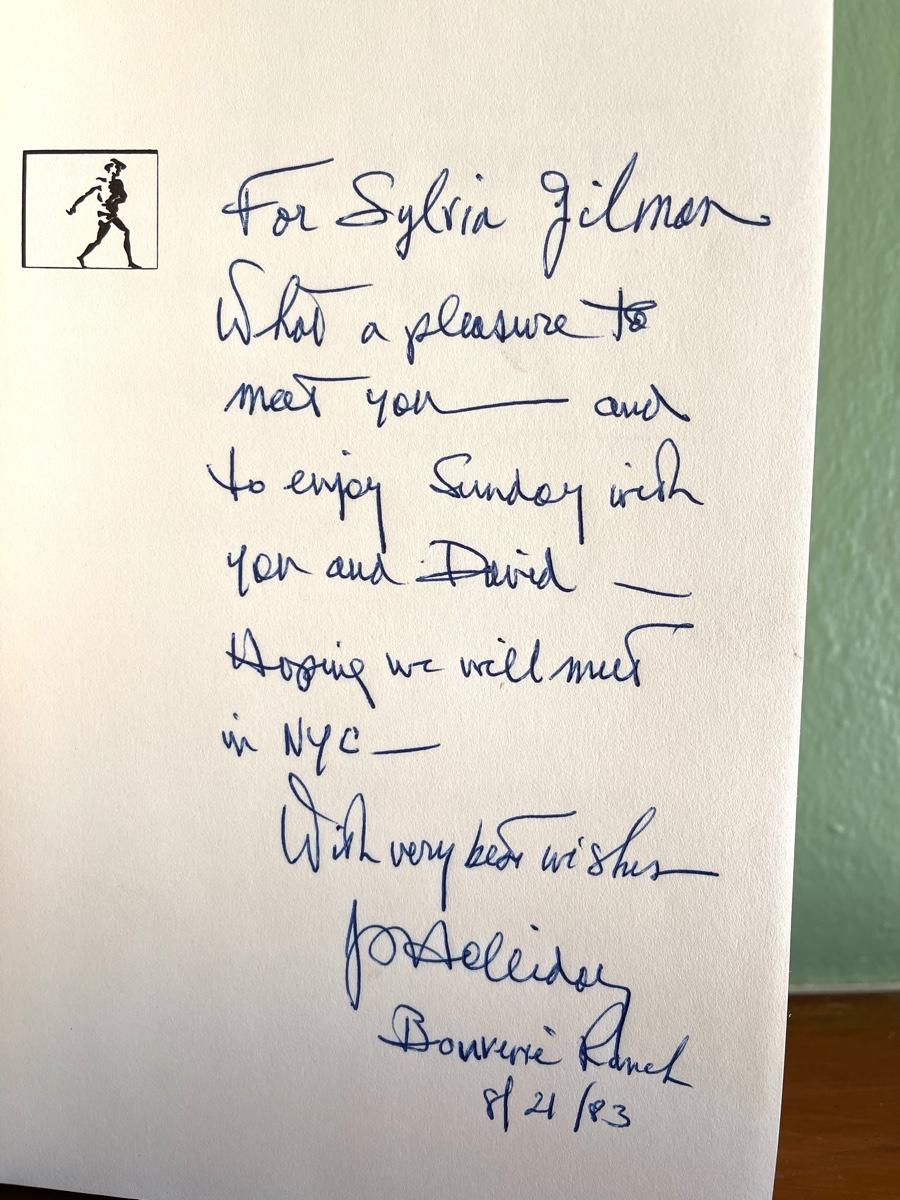 For Sylvia Gilman
What a pleasure to
meet you — and
to enjoy Sunday with
you and David —
Hoping we will meet
in NYC —
With very best wishes
JS Holliday
Bouverie Ranch
8/21/83